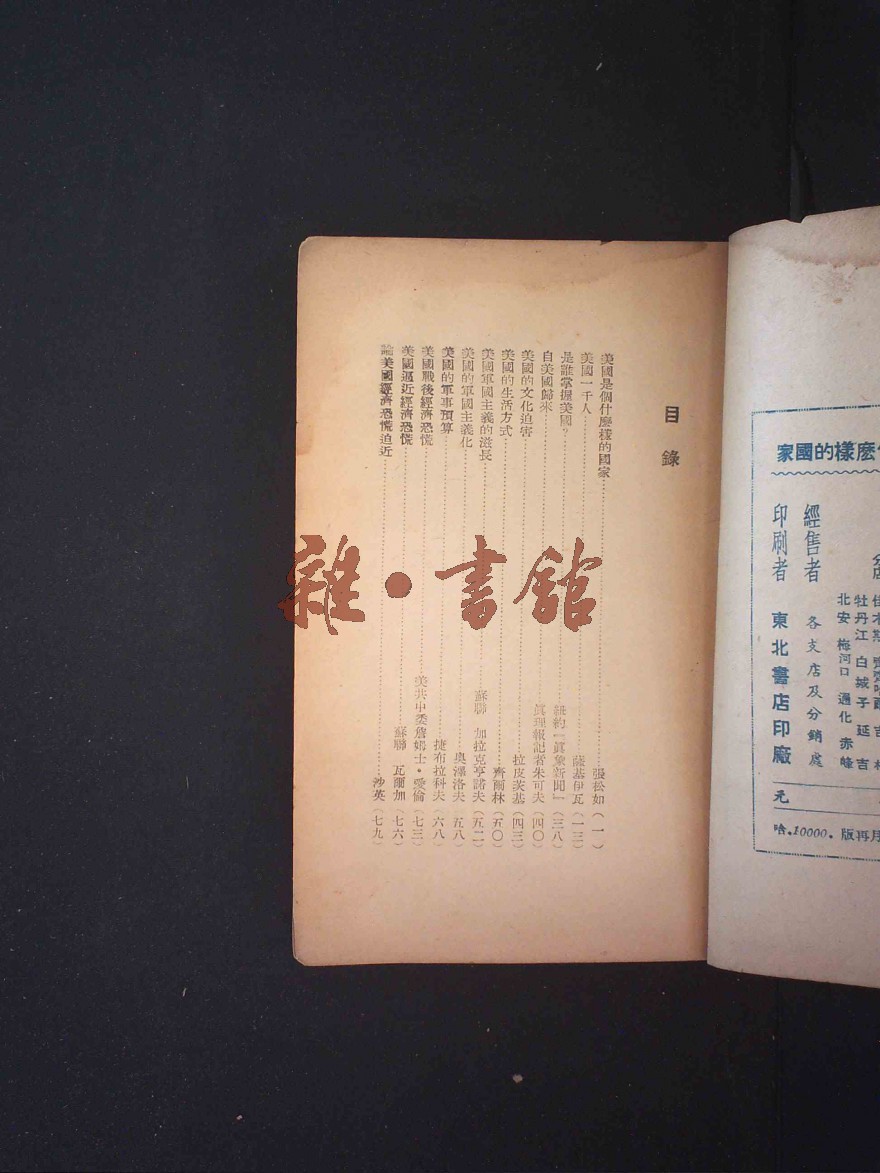 目錄
美國是個什麼樣的國家……張松如(一)
美國一千人……薩基伊瓦(一三)
是誰掌握美國?……紐約「眞象新聞」(三八)
自美國歸來……眞理報記者朱可夫(四〇)
美國的文化迫害……拉皮茨基(四三)
美國的生活方式……齊爾林(五〇)
美國軍國主義的滋長……蘇聯 加拉克亨諾夫(五二)
美國的軍國主義化……奧澤洛夫(五八)
美國的軍事預算……捷布拉科夫(六八)
美國戰後經濟恐慌……美共中委詹姆士・愛倫(七三)
美國逼近經濟恐慌……蘇聯 瓦爾加(七六)
論美國經濟恐慌迫近……沙英(七九)
雜・書館
麼樣的國家
分店
佳木斯 齊齊哈爾 吉林
牡丹江 白城子 延吉
北安 梅河口 通化 赤峰
經售者 各支店及分銷處
印刷者 東北書店印廠
元
月再版.10000.哈